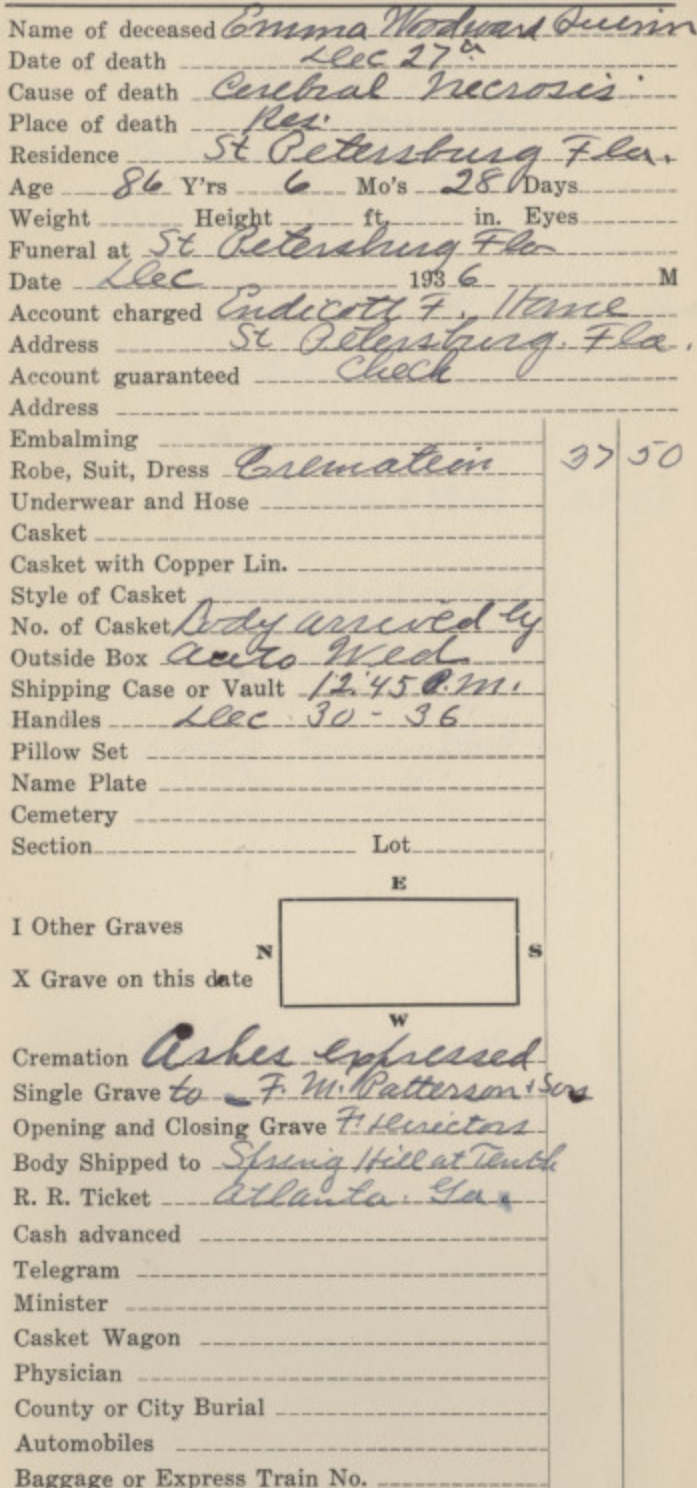 Name of deceased Emma Woodward Quinn
Date of death Dec 27th
Cause of death Cerebral Necrosis
Place of death Res.
Residence St Petersburg Fla.
Age 86 Y'rs 6 Mo's 28 Days
Weight Height ft. in. Eyes
Funeral at St Petersburg Fla
Date Dec 1936 M
Account charged Endicott F. Home
Address St Petersburg. Fla.
Account guaranteed Check
Address
Embalming
Robe, Suit, Dress Cremation 37 50
Underwear and Hose
Casket
Casket with Copper Lin.
Style of Casket
No. of Casket Body arrived by
Outside Box auto Wed
Shipping Case or Vault 12:45 P.M.
Handles Dec 30 - 36
Pillow Set
Name Plate
Cemetery
Section Lot
E
I Other Graves
N S
X Grave on this date
W
Cremation Ashes expressed
Single Grave to F. M. Patterson + Sons
Opening and Closing Grave F. Directors
Body Shipped to Spring Hill at Tenth
R. R. Ticket Atlanta. Ga.
Cash advanced
Telegram
Minister
Casket Wagon
Physician
County or City Burial
Automobiles
Baggage or Express Train No.